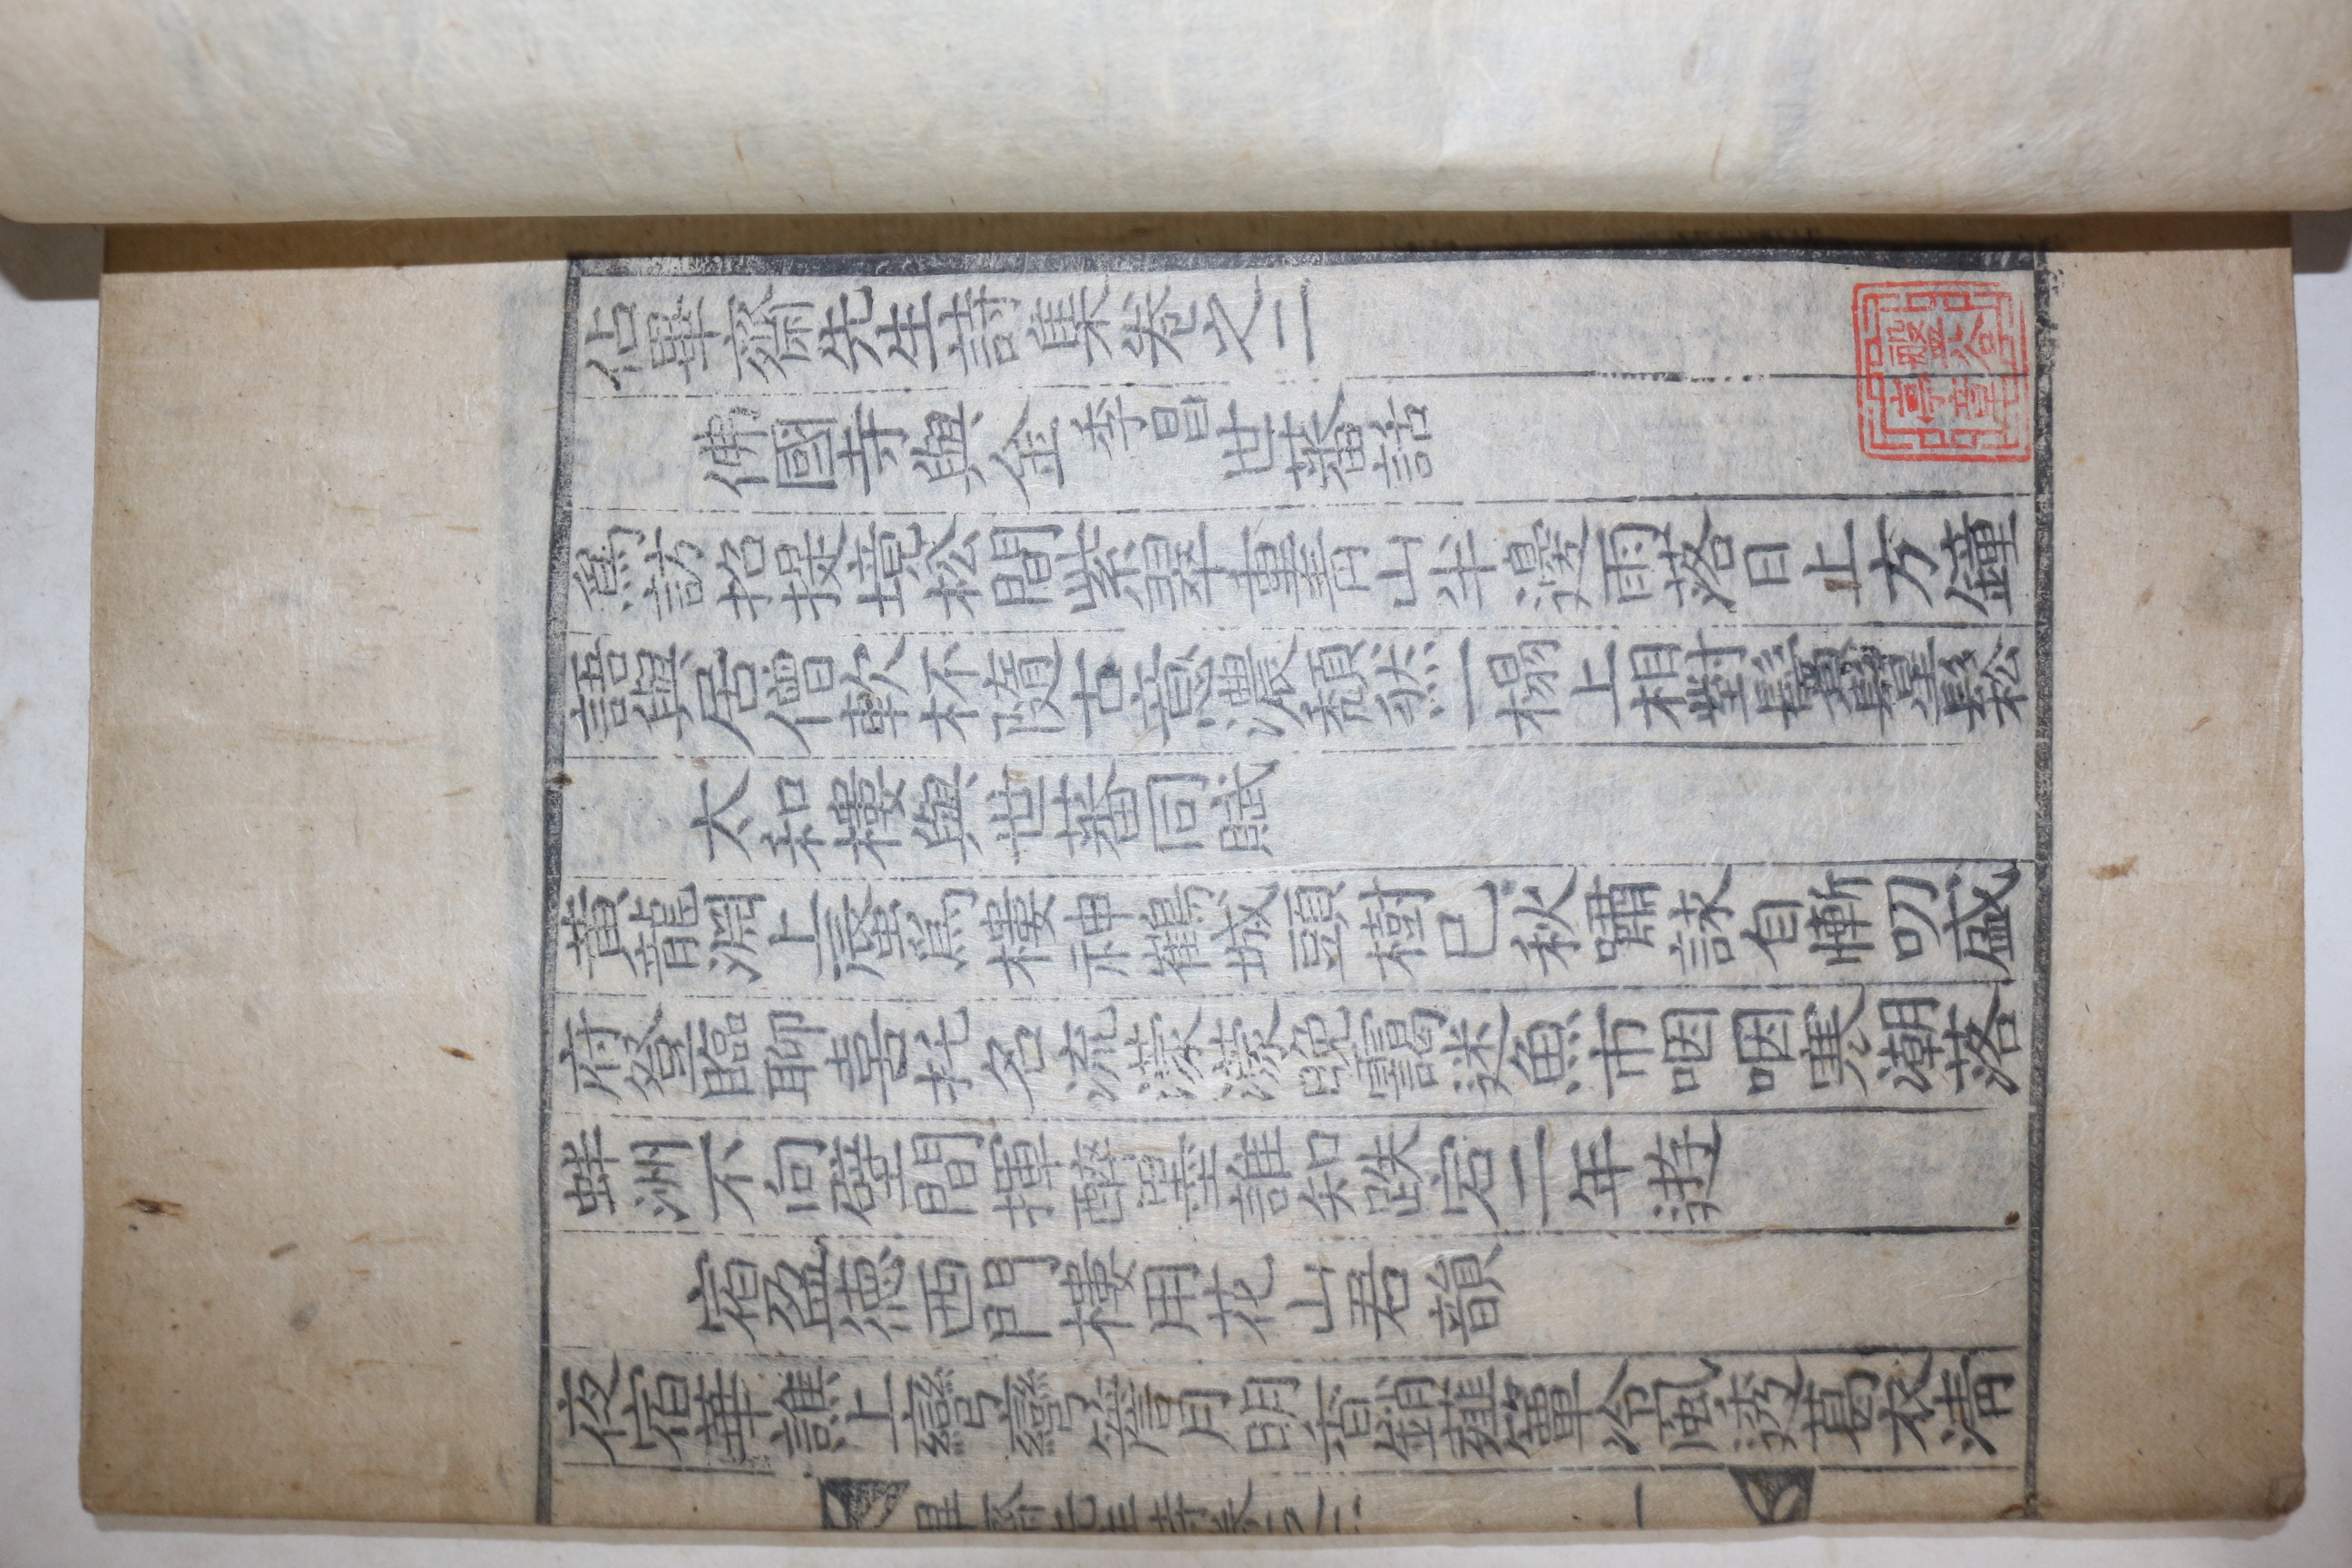 佔畢齋先生詩集卷之二
佛國寺與金季昌世蕃話
爲訪招提境松間紫翠重靑山半邊雨落日上方鐘
語與居僧軟杯隨古意濃頹然一榻上相對鬢鬅鬆
太和樓與世蕃同賦
黃龍淵上蜃爲樓神鶴城頭樹已秋嘯詠自慚叨盛
府登臨聊喜托名流濛濛晚靄迷魚市咽咽寒潮落
蚌洲不向壁間揮醉墨誰知跌宕二年遊
宿盈德西門樓用花山君韻
夜宿華譙上彎彎簷月明香銷薤簟冷風透葛衣淸
畢齋先生詩卷之二 一
盤谷
亭章